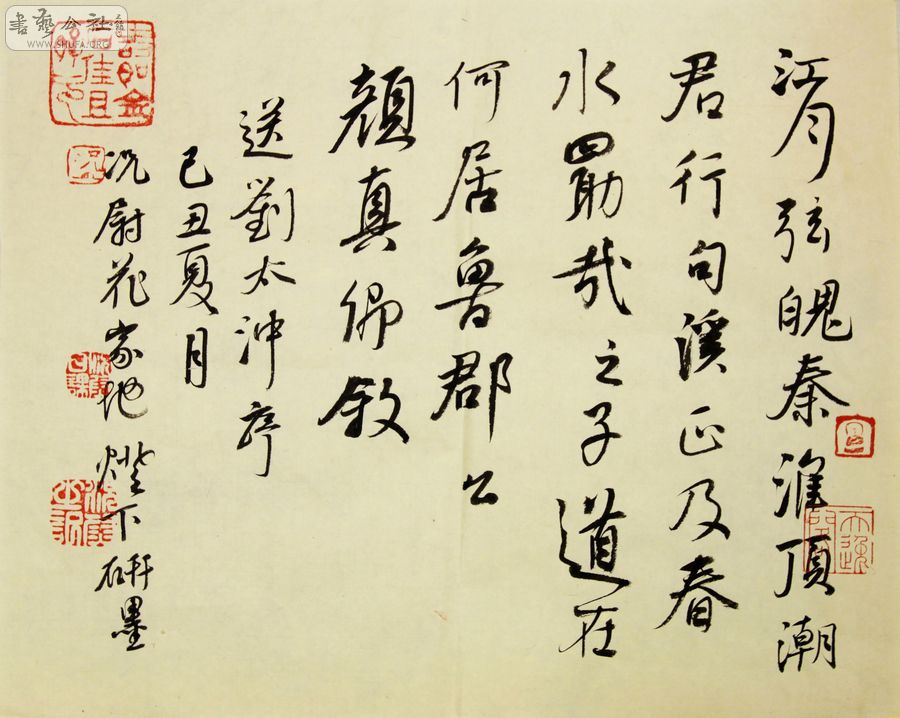 江月弦魄秦淮頂潮
君行句溪正及春
水勖哉之子道在
何居魯郡公
顏真卿敘
送劉太沖序
己丑夏月
況尉花家地燈下研墨
書藝公社
WWW.SHUFA.ORG